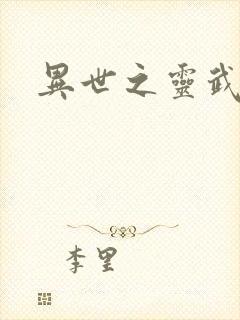 異世之靈武
李里